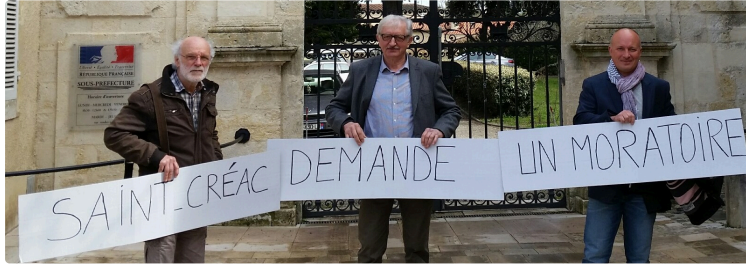 RÉPUBLIQUE FRANÇAISE
SOUS-PRÉFECTURE
SAINT-CRÉAC
DEMANDE
UN MORATOIRE